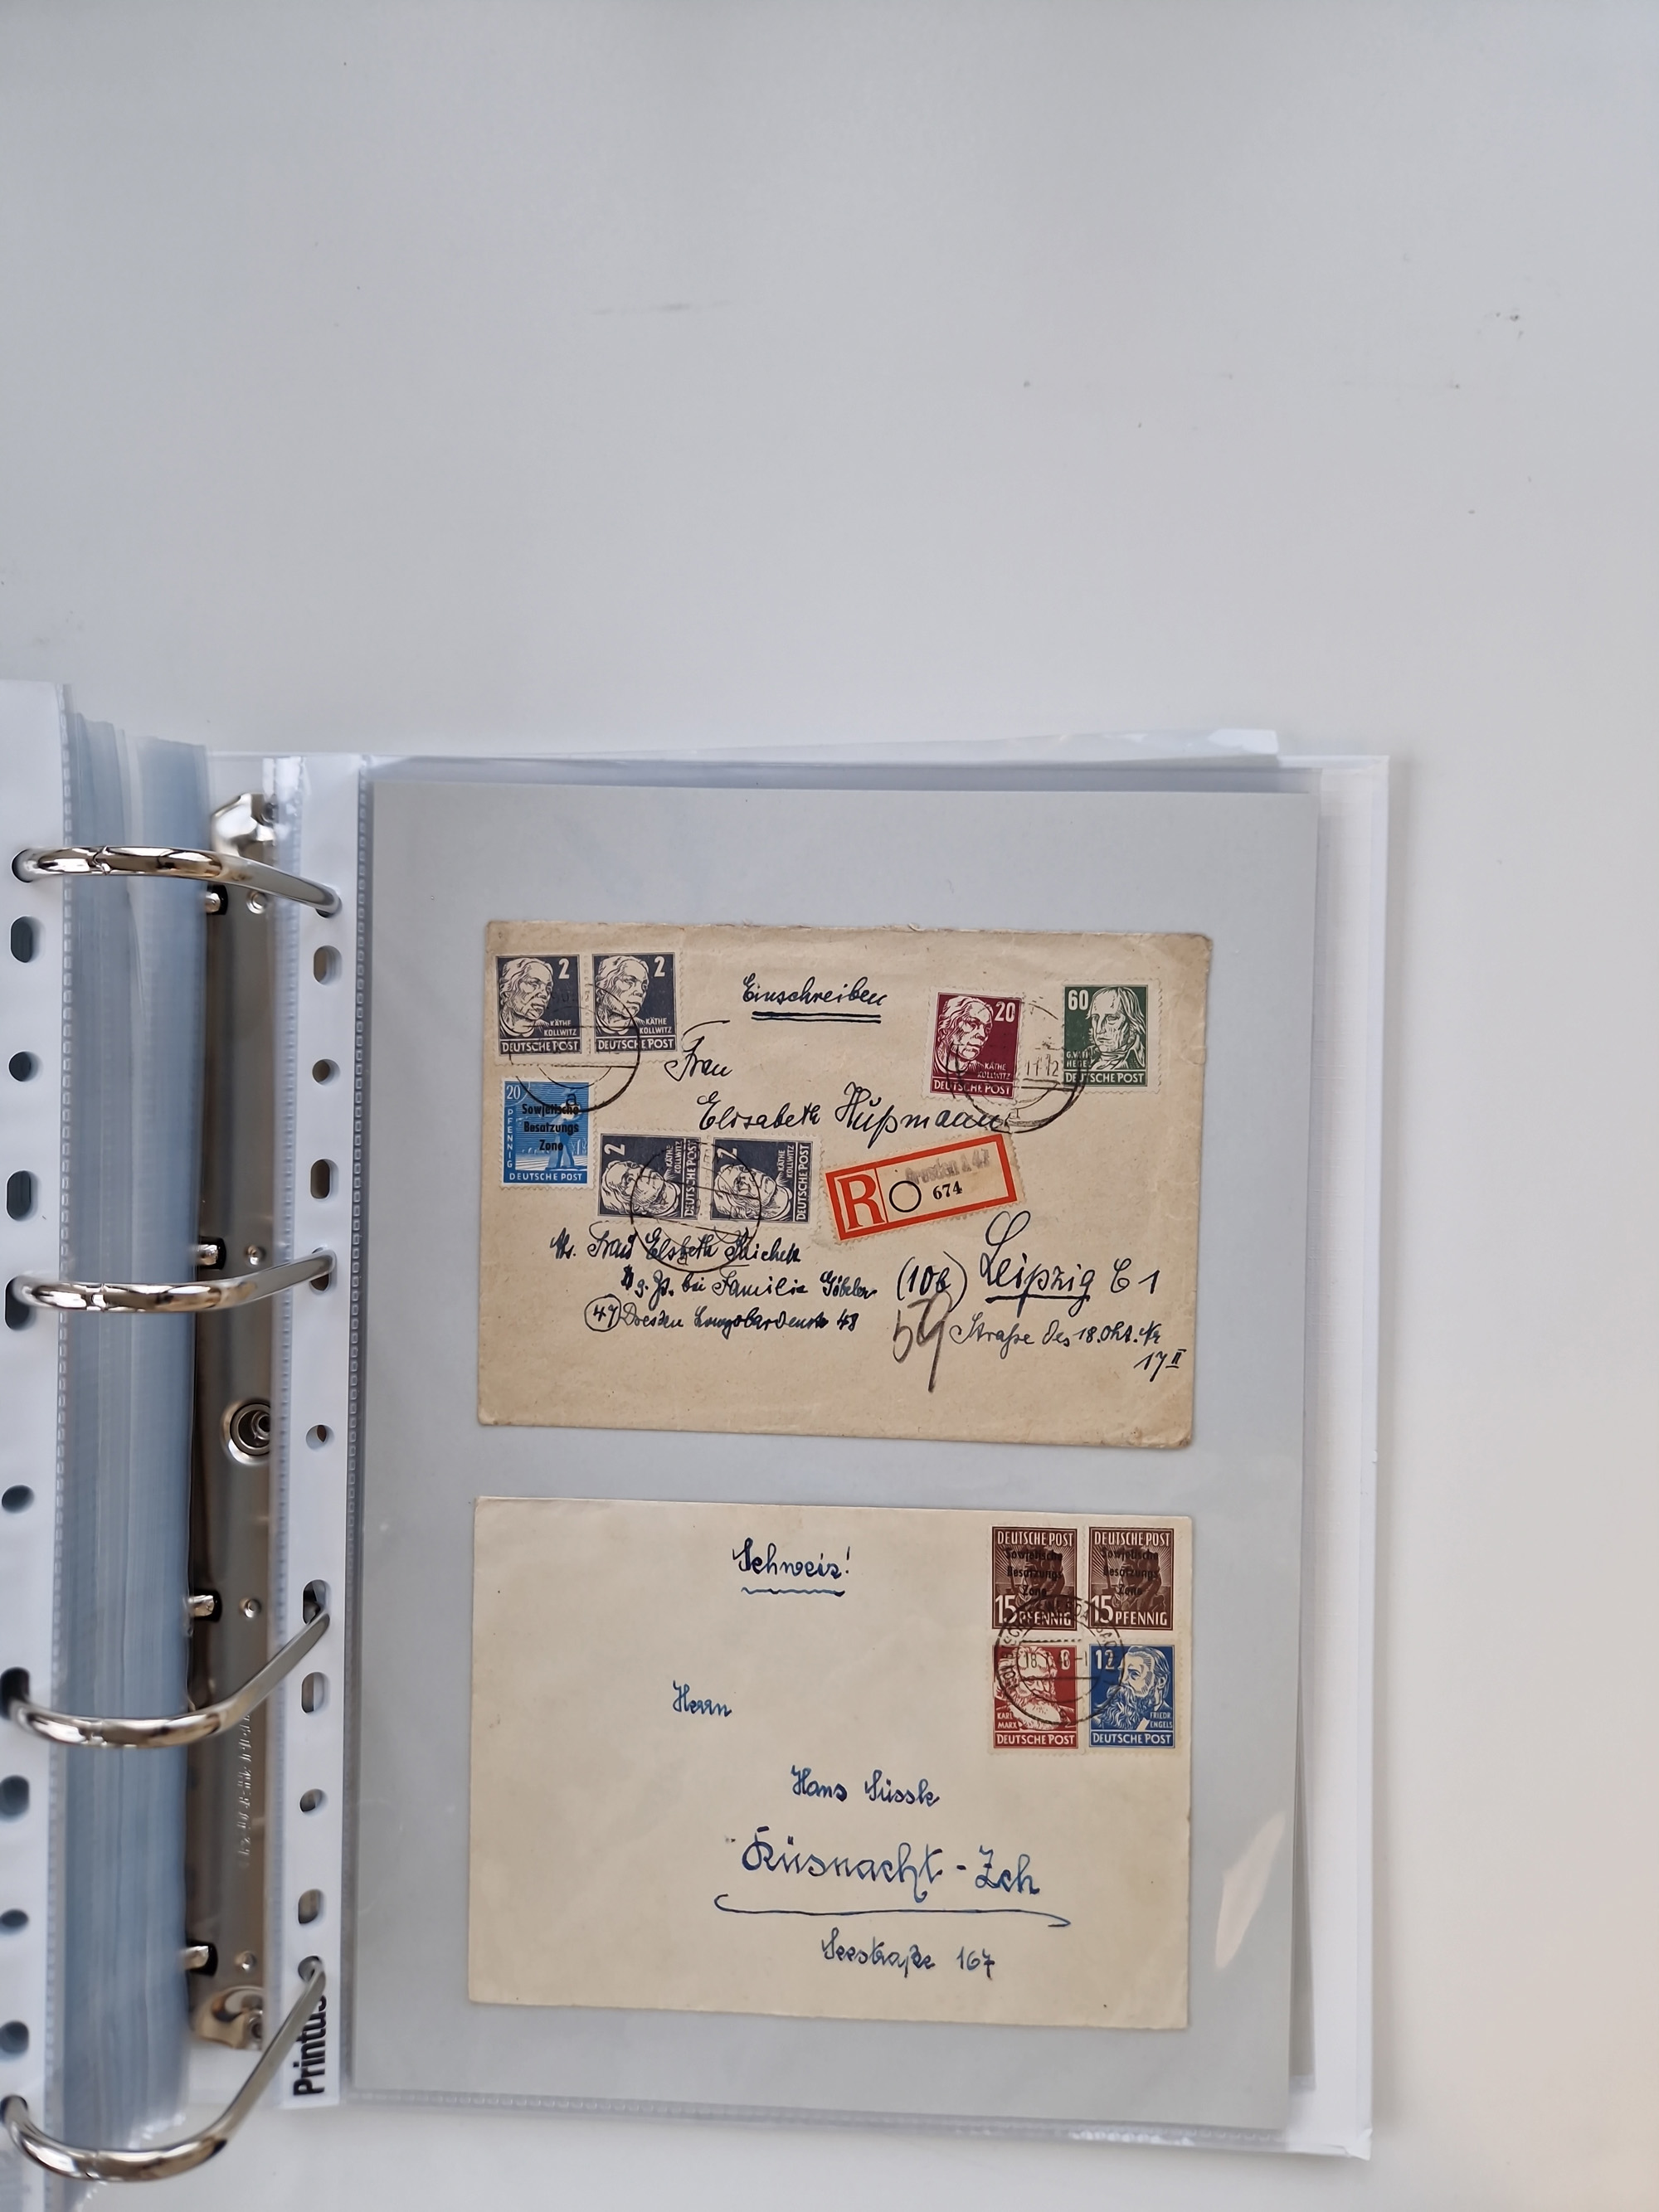 2
KÄTHE
KOLLWITZ
DEUTSCHE POST
2
KÄTHE
KOLLWITZ
DEUTSCHE POST
Einschreiben
20
KÄTHE
KOLLWITZ
DEUTSCHE POST
11-12
60
G.W.FR.
HEGEL
DEUTSCHE POST
Frau
Elisabeth Hüßmann
20
PFENNIG
a
Sowjetische
Besatzungs
Zone
DEUTSCHE POST
2
KÄTHE
KOLLWITZ
DEUTSCHE POST
2
KÄTHE
KOLLWITZ
DEUTSCHE POST
R
Dresden A 47
674
Frau Elsbeth
bei Familie Göbeler
47 Dresden Longobardenstr 48
(10b) Leipzig C 1
Straße des 18. Okt. Nr
17 II
Schweiz!
DEUTSCHE POST
Sowjetische
Besatzungs
Zone
15 PFENNIG
DEUTSCHE POST
Sowjetische
Besatzungs
Zone
15 PFENNIG
8
KARL
MARX
DEUTSCHE POST
12
FRIEDR.
ENGELS
DEUTSCHE POST
Herrn
Hans Süssli
Küsnacht-Zch
Seestraße 167
Printus